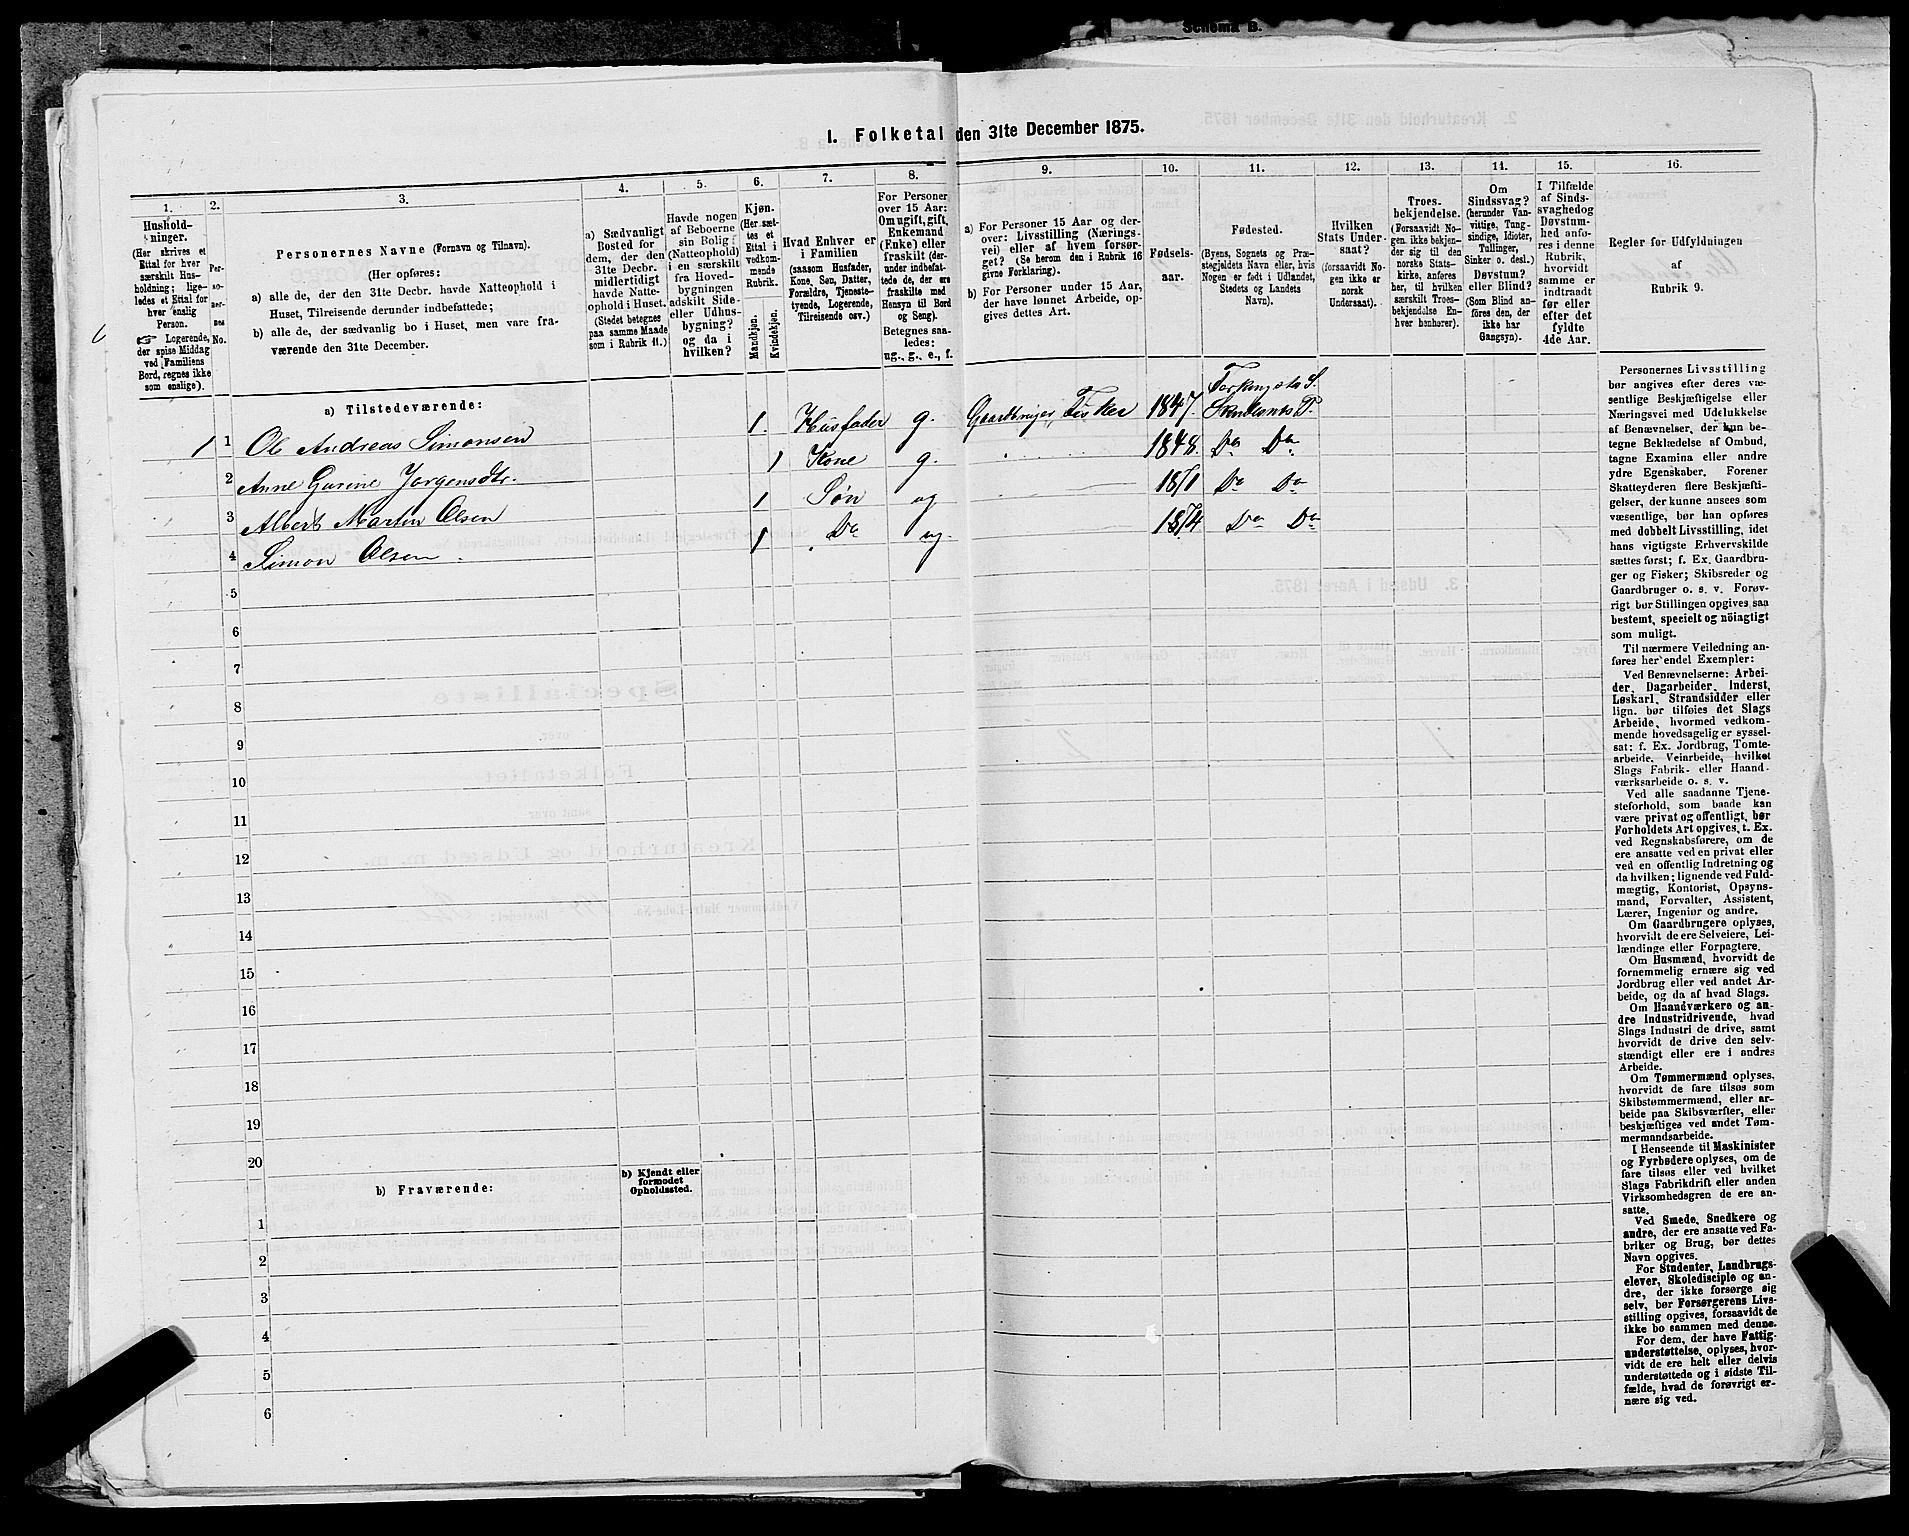 Schema B.
I. Folketal den 31te December 1875.
1. 2. 3. 4. 5. 6. 7. 8. 9. 10. 11. 12. 13. 14. 15. 16.
Hushold-
ninger.
(Her skrives et
Ettal for hver
særskilt Hus-
holdning; lige-
ledes et Ettal for
hver enslig
Person.
☞ Logerende,
der spise Middag
ved Familiens
Bord, regnes ikke
som enslige).
Per-
so-
ner-
nes
No.
Personernes Navne (Fornavn og Tilnavn).
(Her opføres:
a) alle de, der den 31te Decbr. havde Natteophold i
Huset, Tilreisende derunder indbefattede;
b) alle de, der sædvanlig bo i Huset, men vare fra-
værende den 31te December.
a) Sædvanligt
Bosted for
dem, der den
31te Decbr.
midlertidigt
havde Natte-
ophold i Huset.
(Stedet betegnes
paa samme Maade
som i Rubrik 11.)
Havde nogen
af Beboerne
sin Bolig
(Natteophold)
i en særskilt
fra Hoved-
bygningen
adskilt Side-
eller Udhus-
bygning?
og da i
hvilken?
Kjøn.
(Her sæt-
tes et
Ettal i
vedkom-
mende
Rubrik.
Mandkjøn.
Kvindekjøn.
Hvad Enhver er
i Familien
(saasom Husfader,
Kone, Søn, Datter,
Forældre, Tjeneste-
tyende, Logerende,
Tilreisende osv.)
For Personer
over 15 Aar:
Om ugift, gift,
Enkemand
(Enke) eller
fraskilt (der-
under indbefat-
tede de, der ere
fraskilte med
Hensyn til Bord
og Seng).
Betegnes saa-
ledes:
ug., g., e., f.
a) For Personer 15 Aar og der-
over: Livsstilling (Nærings-
vei) eller af hvem forsør-
get? (Se herom den i Rubrik 16
givne Forklaring).
b) For Personer under 15 Aar,
der have lønnet Arbeide, op-
gives dettes Art.
Fødsels-
aar.
Fødested.
(Byens, Sognets og Præ-
stegjeldets Navn eller, hvis
Nogen er født i Udlandet,
Stedets og Landets
Navn).
Hvilken
Stats Under-
saat?
(forsaavidt No-
gen ikke er
norsk
Undersaat).
Troes-
bekjendelse.
(Forsaavidt No-
gen ikke bekjen-
der sig til den
norske Stats-
kirke, anføres
her, til hvilken
særskilt Troes-
bekjendelse En-
hver henhører).
Om
Sindssvag?
(herunder Van-
vittige, Tung-
sindige, Idioter,
Tullinger,
Sinker o. desl.)
Døvstum?
eller Blind?
(Som Blind an-
føres den, der
ikke har
Gangsyn).
I Tilfælde
af Sinds-
svaghed og
Døvstum-
hed anfø-
res i denne
Rubrik,
hvorvidt
samme er
indtraadt
før eller
efter det
fyldte
4de Aar.
Regler for Udfyldningen
af
Rubrik 9.
a) Tilstedeværende:
Torkingsta S.
1 1 Ole Andreas Simonsen 1. Husfader g. Gaardbruger, Fisker 1847. Skudesnes P.
2 Anne Gurine Jørgensdtr. 1 Kone g. 1848. Do Do
3 Albert Martin Olsen 1 Søn ug 1871 Do Do
4 Simon Olsen 1 Do ug. 1874 Do Do
5
6
7
8
9
10
11
12
13
14
15
16
17
18
19
20
b) Fraværende:
b) Kjendt eller
formodet
Opholdssted.
1
2
3
4
5
6
Personernes Livsstilling
bør angives efter deres væ-
sentlige Beskjæftigelse eller
Næringsvei med Udelukkelse
af Benævnelser, der kun be-
tegne Beklædelse af Ombud,
tagne Examina eller andre
ydre Egenskaber. Forener
Skatteyderen flere Beskjæfti-
gelser, der kunne ansees som
væsentlige, bør han opføres
med dobbelt Livsstilling, idet
hans vigtigste Erhvervskilde
sættes først; f. Ex. Gaardbru-
ger og Fisker; Skibsreder og
Gaardbruger o. s. v. Forøv-
rigt bør Stillingen opgives saa
bestemt, specielt og nöiagtigt
som muligt.
Til nærmere Veiledning an-
føres her endel Exempler:
Ved Benævnelserne: Arbei-
der, Dagarbeider, Inderst,
Løskarl, Strandsidder eller
lign. bør tilføies det Slags
Arbeide, hvormed vedkom-
mende hovedsagelig er syssel-
sat: f. Ex. Jordbrug, Tomte-
arbeide, Veiarbeide, hvilket
Slags Fabrik- eller Haand-
værksarbeide o. s. v.
Ved alle saadanne Tjene-
steforhold, som baade kan
være privat og offentligt, bør
Forholdets Art opgives, t. Ex.
ved Regnskabsførere, om de
ere ansatte ved en privat eller
ved en offentlig Indretning og
da hvilken; lignende ved Fuld-
mægtig, Kontorist, Opsyns-
mand, Forvalter, Assistent,
Lærer, Ingeniør og andre.
Om Gaardbrugere oplyses,
hvorvidt de ere Selveiere, Lei-
lændinge eller Forpagtere.
Om Husmænd, hvorvidt de
fornemmelig ernære sig ved
Jordbrug eller ved andet Ar-
beide, og da af hvad Slags.
Om Haandværkere og an-
dre Industridrivende, hvad
Slags Industri de drive, samt
hvorvidt de drive den selv-
stændigt eller ere i andres
Arbeide.
Om Tømmermænd oplyses,
hvorvidt de fare tilsøs som
Skibstømmermænd, eller ar-
beide paa Skibsværfter, eller
beskjæftiges ved andet Tøm-
mermandsarbeide.
I Henseende til Maskinister
og Fyrbødere oplyses, om de
fare tilsøs eller ved hvilket
Slags Fabrikdrift eller anden
Virksomhedsgren de ere an-
satte.
Ved Smede, Snedkere og
andre, der ere ansatte ved Fa-
briker og Brug, bør dettes
Navn opgives.
For Studenter, Landbrugs-
elever, Skoledisciple og an-
dre, der ikke forsørge sig
selv, bør Forsørgerens Livs-
stilling opgives, forsaavidt de
ikke bo sammen med denne.
For dem, der have Fattig-
understøttelse, oplyses, hvor-
vidt de ere helt eller delvis
understøttede og i sidste Til-
fælde, hvad de forøvrigt er-
nære sig ved.